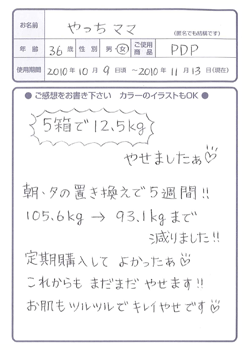 お名前 やっち ママ (匿名でも結構です)
年齢 36歳 性別 男・女 ご使用商品 PDP
使用期間 2010年10月9日頃 ~ 2010年11月13日(現在)
●ご感想をお書き下さい カラーのイラストもOK●
5箱で12.5kg
やせましたぁ♡
朝、夕の置き換えで5週間!!
105.6kg → 93.1kgまで
減りました!!
定期購入して よかったぁ♡
これからも まだまだ やせます!!
お肌もツルツルで キレイやせです♡